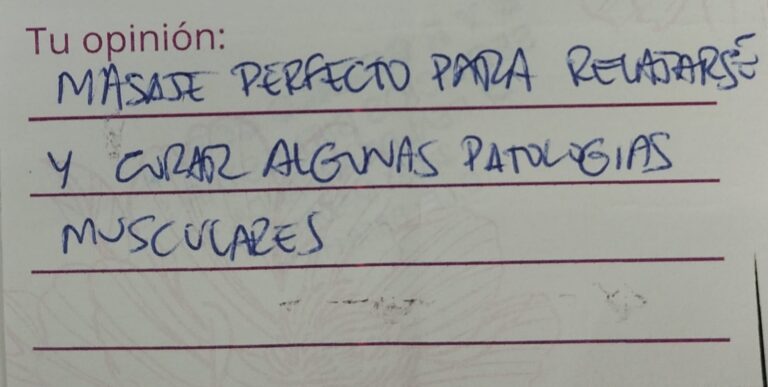 Tu opinión:
MASAJE PERFECTO PARA RELAJARSE
Y CURAR ALGUNAS PATOLOGIAS
MUSCULARES